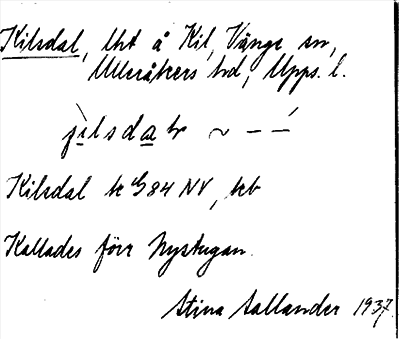 Kilsdal, lht å Kil, Vänge sn,
Ulleråkers hd, Upps. l.
jilsdal ~ – –́
Kilsdal k G84 NV, kb
Kallades förr Nystugan.
Stina Sallander 1937.